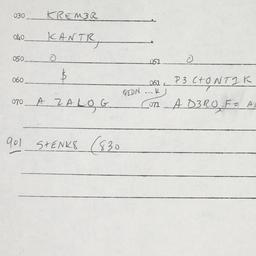 030 KREM3R.
040 KANTR,
050 0 051 0
060 $ 061 P3 C+ONT1K
070 A ZALO,G 071 A D3RO,F=
901 S+ENK8 (830